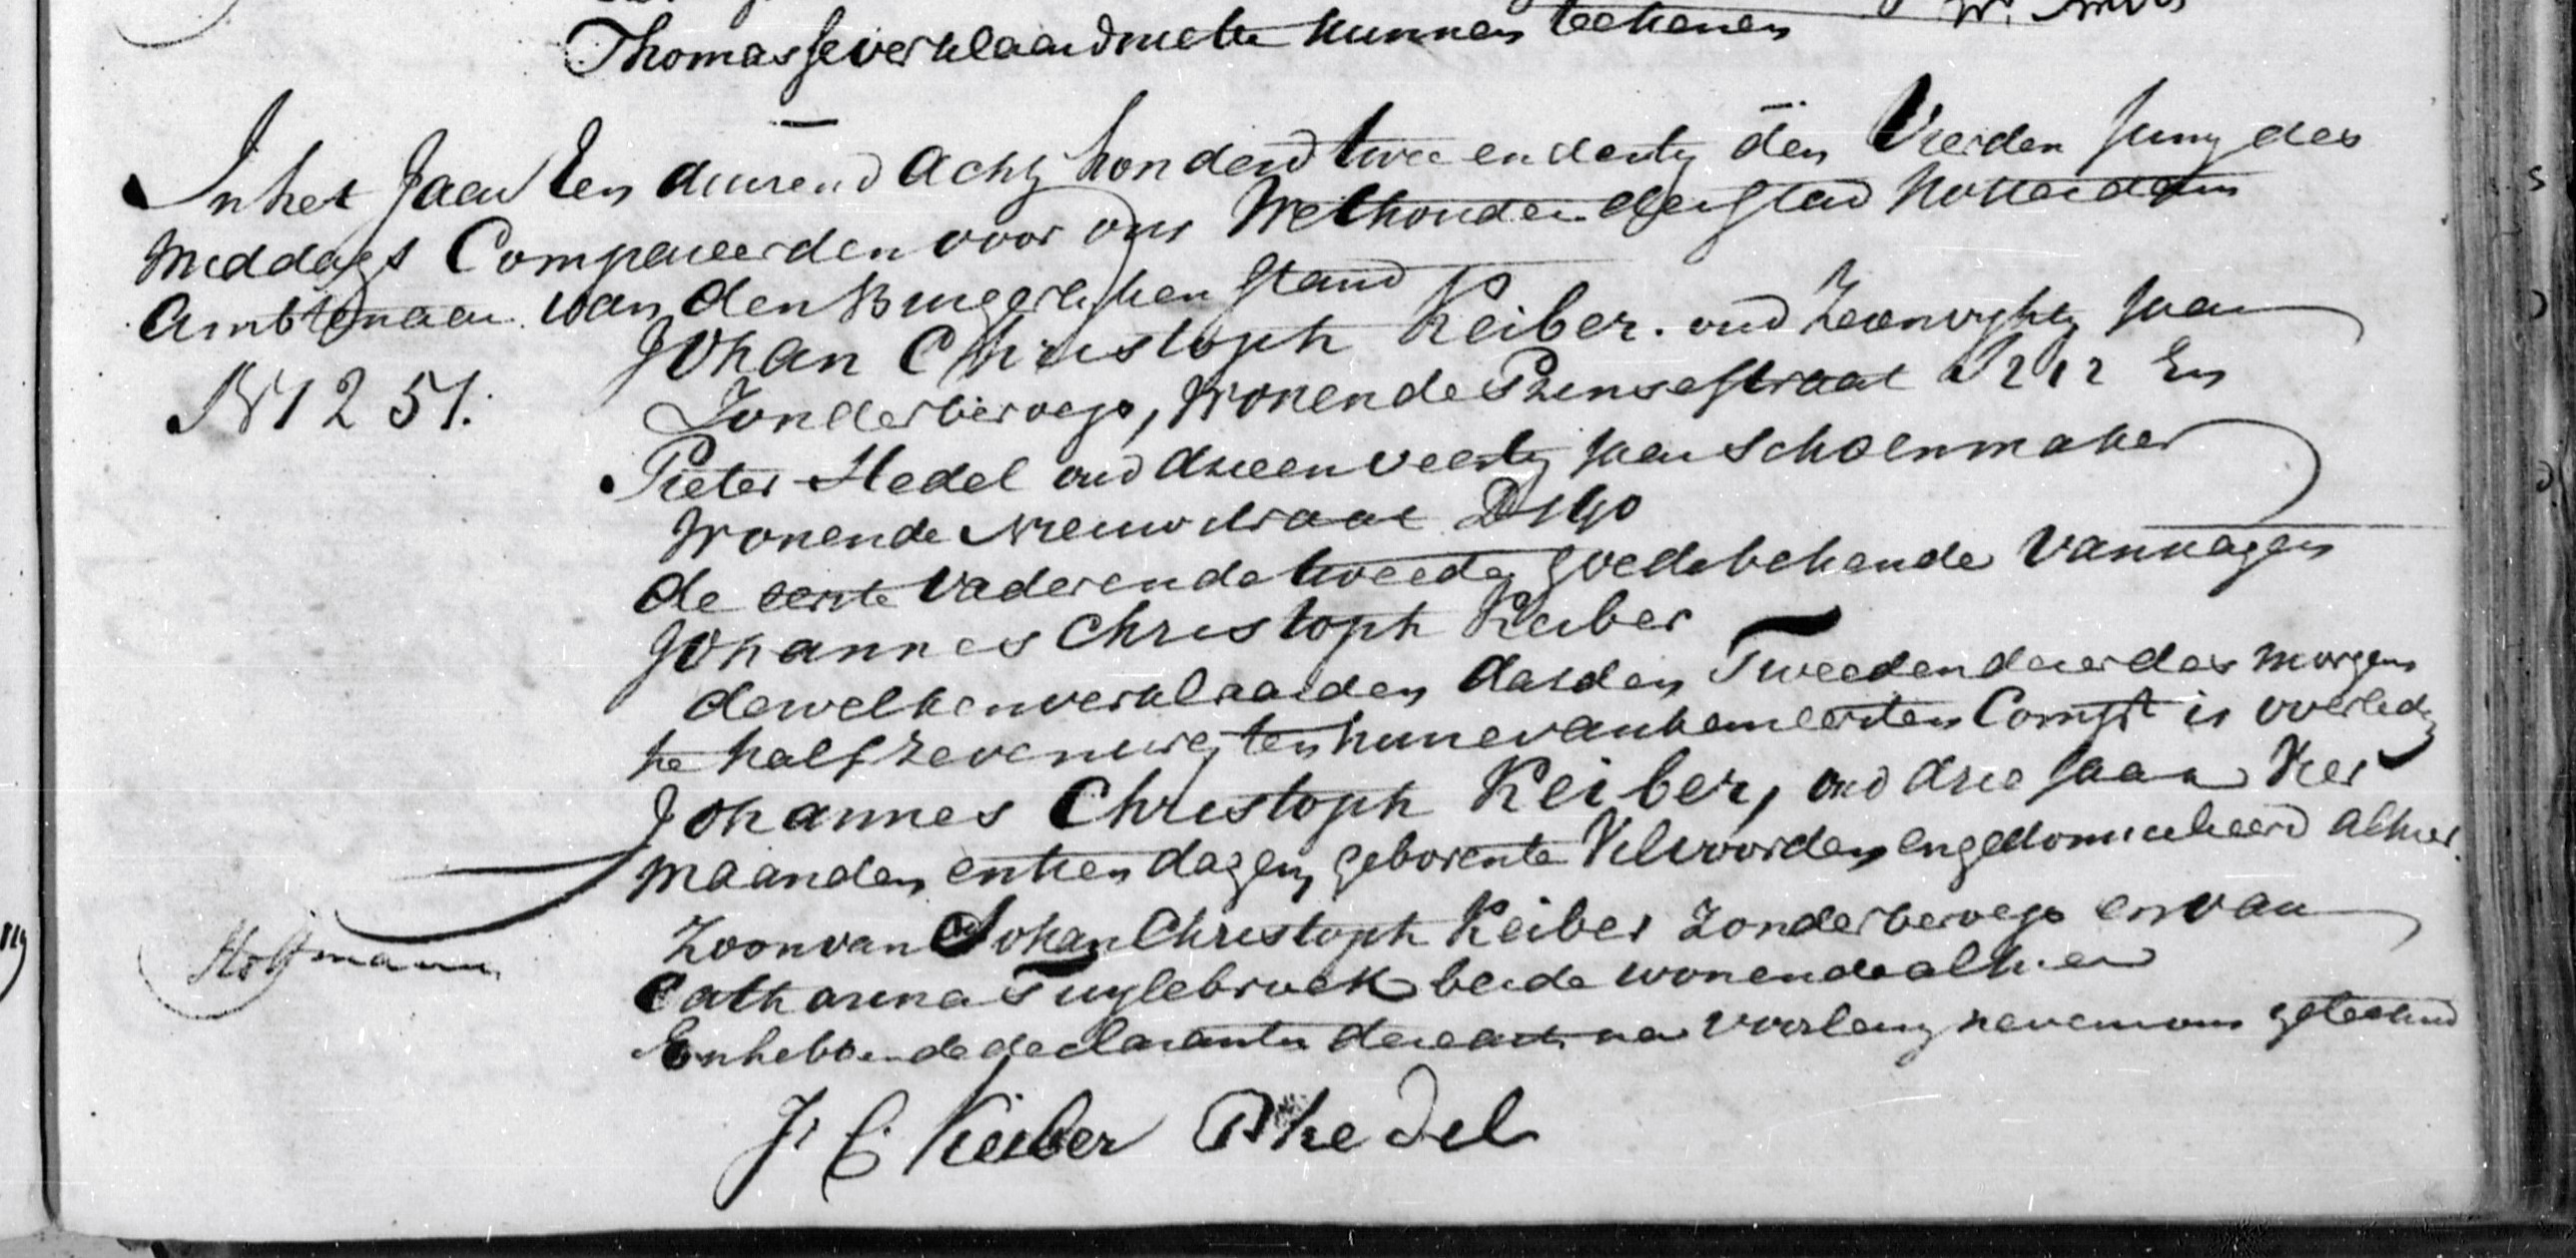 Thomasse verklaard niet te kunnen teekenen
In het Jaar Een duizend Acht honderd twee en dertig den Vierden Juny des
Middags Compareerden voor ons Wethouder der Stad Rotterdam
Ambtenaar van den Burgerlijken Stand
Johan Christoph Keiber. oud Jaar
N 1251.
Zonder beroep, Wonende Prinsestraat 212 En
Pieter Hedel oud drieenveertig Jaar Schoenmaker
Wonende Nieuwstraat D 190
de eerste vader en de tweede goede bekende van wijlen
Johannes Christoph Keiber
dewelken verklaarden dat den Tweeden dezer des morgens
te half zeven ure, ten huize van hem eersten Compt is overleden
Johannes Christoph Keiber, oud drie Jaar Vier
maanden en tien dagen, geboren te Vilvoorden en gedomicilieerd alhier.
Zoon van Johan Christoph Keiber Zonder beroep en van
Hoffmann
Catharina Tuylebroek beide wonende alhier
En hebben de declaranten deze acte na voorlezing nevens ons geteekend
J. C. Keiber P Hedel